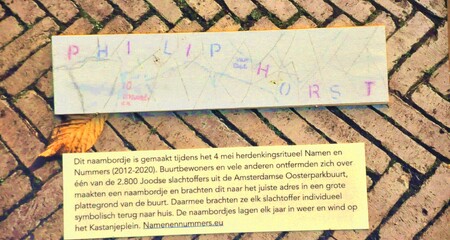 PHILIP
HORST
Dit naambordje is gemaakt tijdens het 4 mei herdenkingsritueel Namen en
Nummers (2012-2020). Buurtbewoners en vele anderen ontfermden zich over
één van de 2.800 Joodse slachtoffers uit de Amsterdamse Oosterparkbuurt,
maakten een naambordje en brachten dit naar het juiste adres in een grote
plattegrond van de buurt. Daarmee brachten ze elk slachtoffer individueel
symbolisch terug naar huis. De naambordjes lagen elk jaar in weer en wind op
het Kastanjeplein. Namenennummers.eu